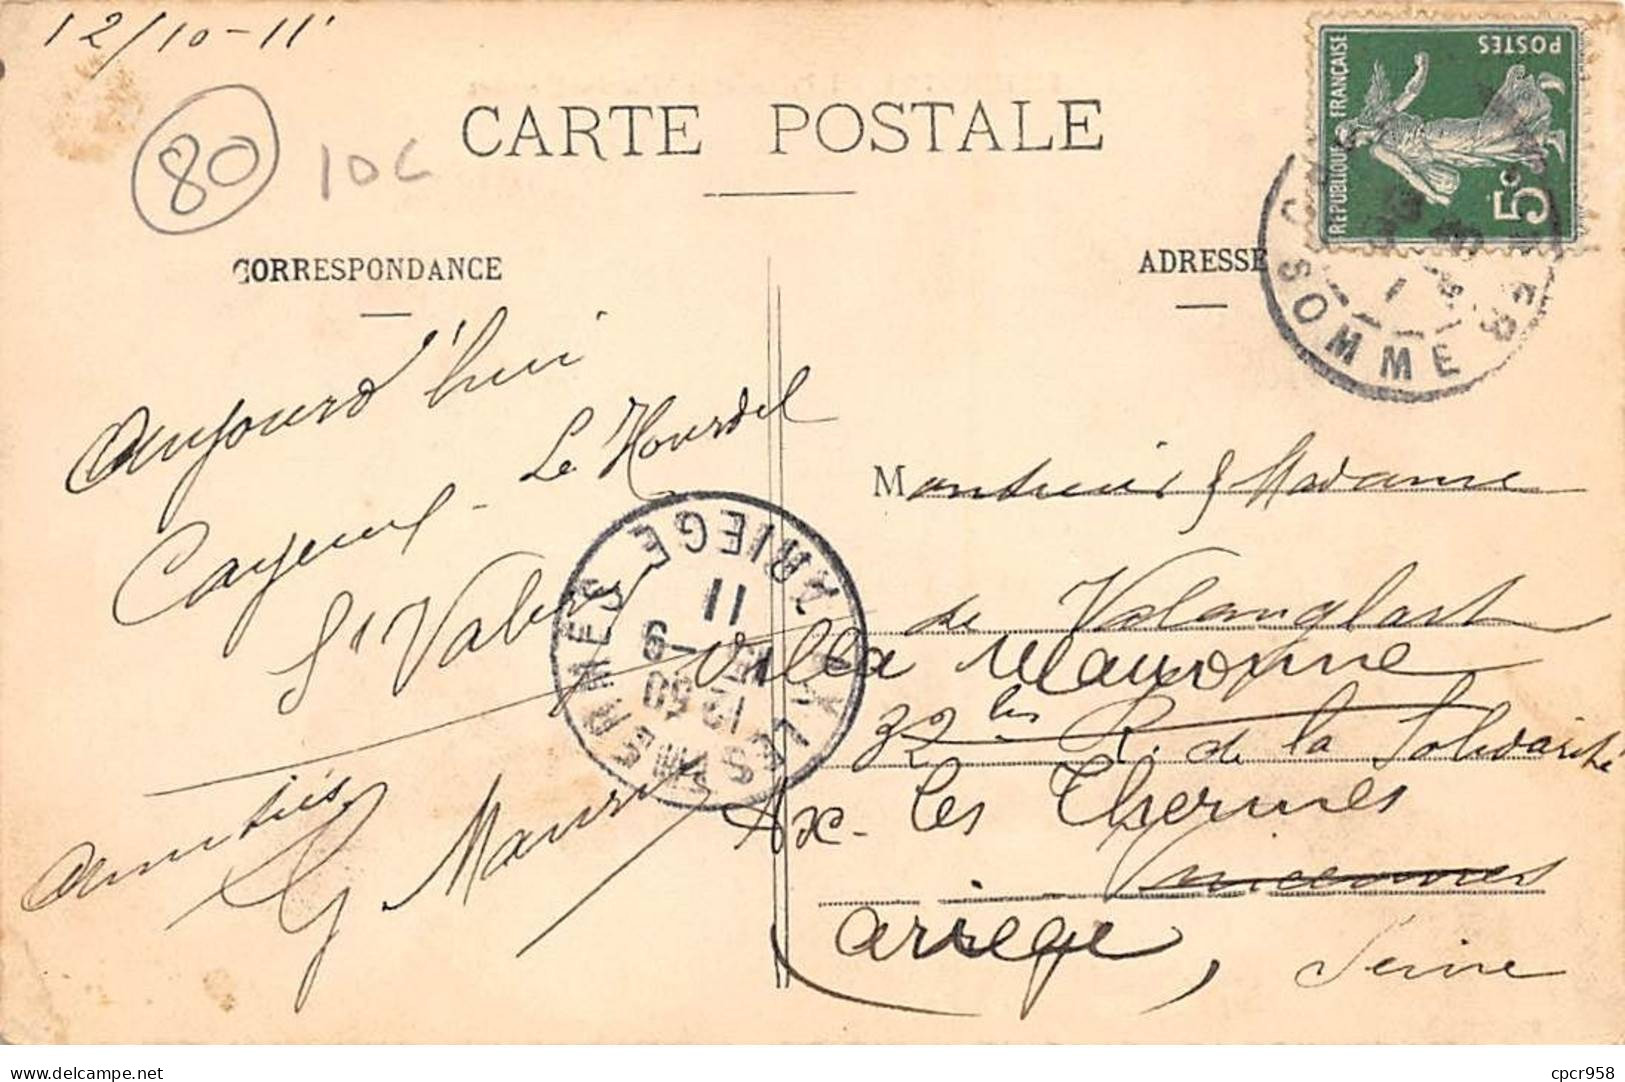 12/10-11
80
10C
CARTE POSTALE
CORRESPONDANCE
ADRESSE
RÉPUBLIQUE FRANÇAISE
POSTES
5c
SOMME
Aujourd'hui
Cayeux - Le Hourdel
St Valery
amitiés
G Maury
AX-LES-THERMES
ARIEGE
12 50
9
11
Monsieur & Madame
de Valanglart
Villa
32 bis R. de la Solidarité
Ax-les Thermes
Vincennes
Ariege,
Seine
delcampe.net
cpcr958